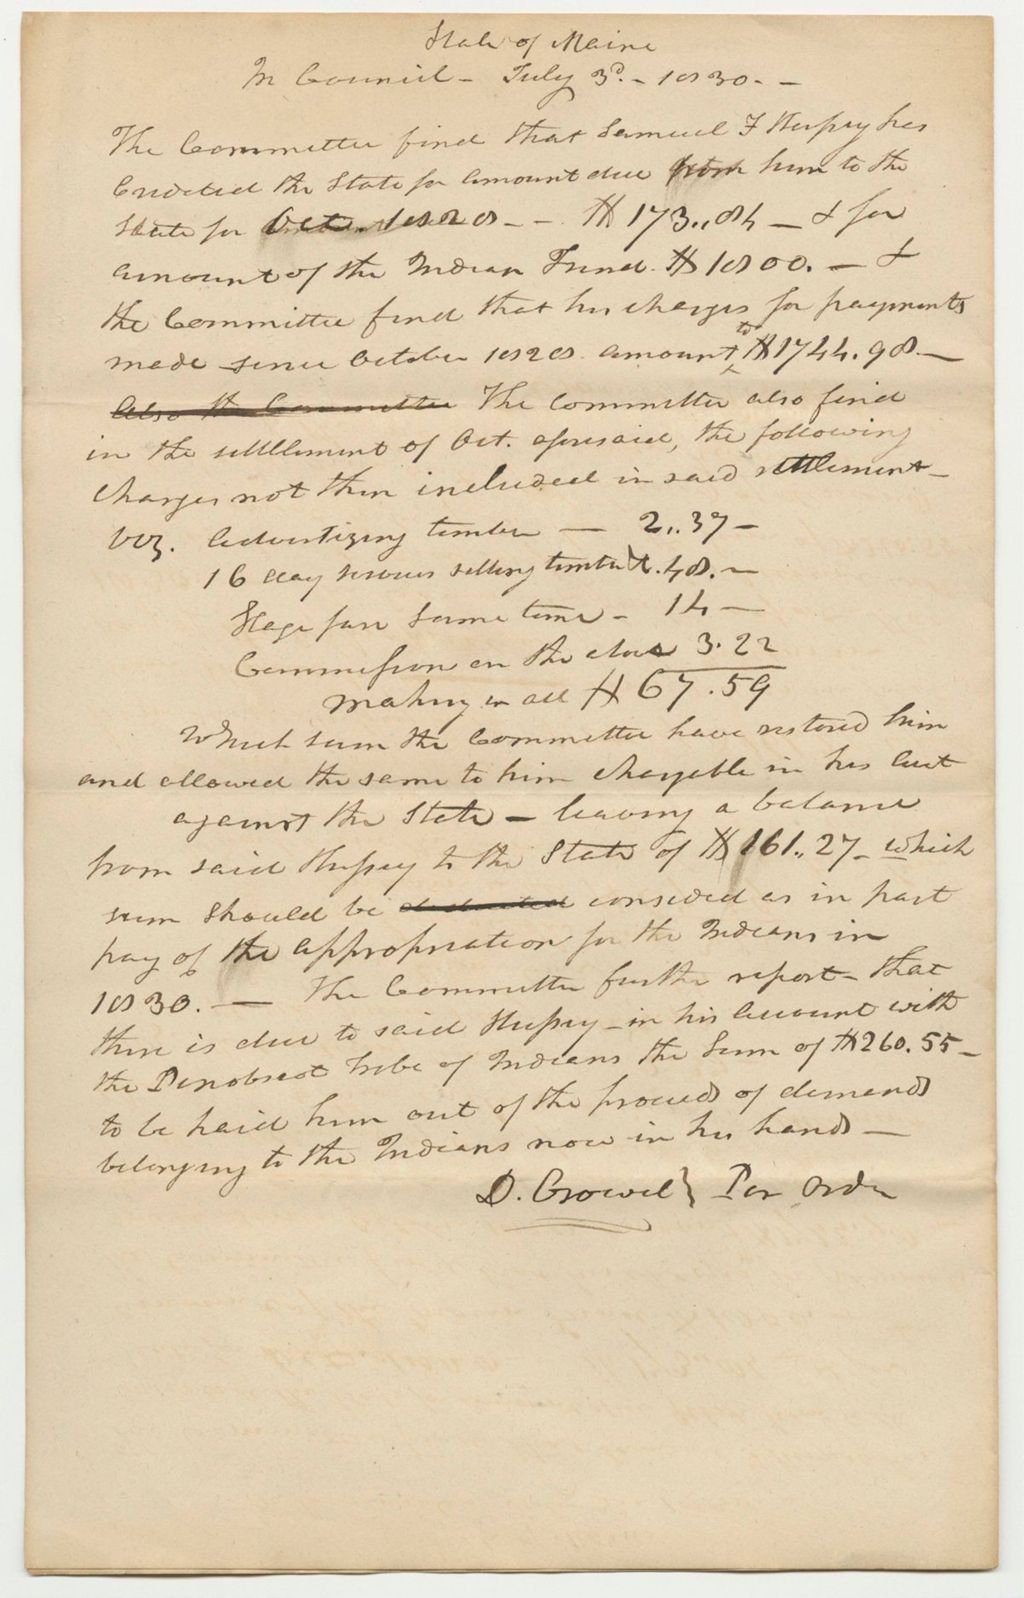 State of Maine
In Council - July 3d. - 1830. -
The Committee find that Samuel F Hussey has
Credited the State for amount due from him to the
State for Oct. 1828 - - $173..84 - & for
amount of the Indian Fund $1800. - &
the Committee find that his charges for payments
made since October 1828 amount to $1744.98. -
Also the Committee The Committee also find
in the settlement of Oct. aforesaid, the following
charges not then included in said settlement -
viz. Advertizing timber - 2..37 -
16 day services selling timber 48. -
Stage fare same time - 14 -
Commission on the above 3.22
making in all $67.59
Which sum the Committee have restored him
and allowed the same to him chargeable in his acct
against the State - leaving a balance
from said Hussey to the State of $161..27 - which
sum should be deducted consided as in part
pay of the appropriation for the Indians in
1830. - The Committee further report - that
there is due to said Hussey - in his account with
the Penobscot tribe of Indians the Sum of $260.55 -
to be paid him out of the proceeds of demands
belonging to the Indians now in his hands -
D. Crowel } Per Order